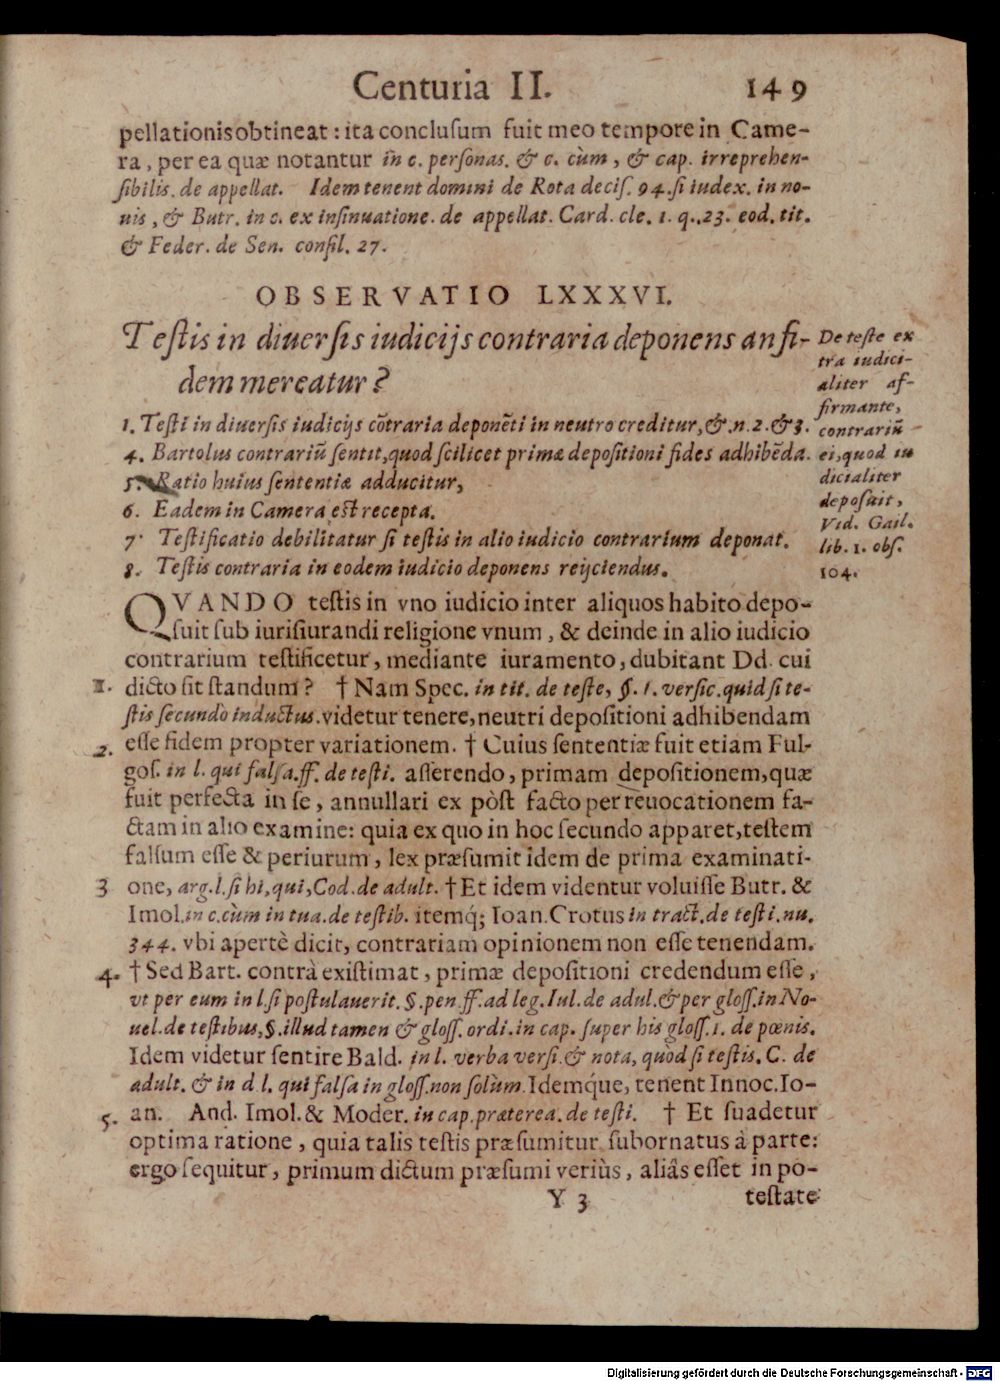 Centuria II. 149
pellationis obtineat : ita conclusum fuit meo tempore in Came-
ra, per ea quæ notantur in c. personas. & c. cùm, & cap. irreprehen-
sibilis. de appellat. Idem tenent domini de Rota decis. 94. si iudex. in no-
uis, & Butr. in c. ex insinuatione. de appellat. Card. cle. 1. q., 23. eod. tit.
& Feder. de Sen. consil. 27.
OBSERVATIO LXXXVI.
Testis in diuersis iudicijs contraria deponens an fi-
dem mereatur?
De teste ex
tra iudici-
aliter af-
firmante,
contrariũ
ei, quod iu
dicialiter
deposuit,
Vid. Gail.
lib. 1. obs.
104.
1. Testi in diuersis iudicijs cõtraria deponẽti in neutro creditur, &. n. 2. & 3.
4. Bartolus contrariũ sentit, quod scilicet primæ depositioni fides adhibẽda.
5. Ratio huius sententiæ adducitur,
6. Eadem in Camera est recepta.
7. Testificatio debilitatur si testis in alio iudicio contrarium deponat.
8. Testis contraria in eodem iudicio deponens reijciendus.
QVANDO testis in vno iudicio inter aliquos habito depo-
suit sub iurisiurandi religione vnum, & deinde in alio iudicio
contrarium testificetur, mediante iuramento, dubitant Dd. cui
1. dicto sit standum? † Nam Spec. in tit. de teste, §. 1. versic. quid si te-
stis secundò inductus. videtur tenere, neutri depositioni adhibendam
2. esse fidem propter variationem. † Cuius sententiæ fuit etiam Ful-
gos. in l. qui falsa. ff. de testi. asserendo, primam depositionem, quæ
fuit perfecta in se, annullari ex pòst facto per reuocationem fa-
ctam in alio examine: quia ex quo in hoc secundo apparet, testem
falsum esse & periurum, lex præsumit idem de prima examinati-
3 one, arg. l. si hi, qui, Cod. de adult. † Et idem videntur voluisse Butr. &
Imol. in c. cùm in tua. de testib. itemq́; Ioan. Crotus in tract. de testi. nu.
344. vbi apertè dicit, contrariam opinionem non esse tenendam.
4. † Sed Bart. contrà existimat, primæ depositioni credendum esse,
vt per eum in l. si postulauerit. §. pen. ff. ad leg. Iul. de adul. & per gloss. in No-
uel. de testibus, §. illud tamen & gloss. ordi. in cap. super his gloss. 1. de pœnis.
Idem videtur sentire Bald. in l. verba versi. & nota, quòd si testis. C. de
adult. & in d l. qui falsa in gloss. non solùm. Idemq́ue, tenent Innoc. Io-
5. an. And. Imol. & Moder. in cap. præterea. de testi. † Et suadetur
optima ratione, quia talis testis præsumitur subornatus à parte:
ergo sequitur, primum dictum præsumi veriùs, aliâs esset in po-
Y 3 testate
Digitalisierung gefördert durch die Deutsche Forschungsgemeinschaft - DFG